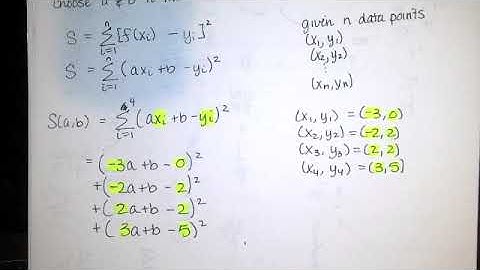 choose a & b to
S = Σ_{i=1}^{n} [f(xi) - yi]²
S = Σ_{i=1}^{n} (axi + b - yi)²
S(a,b) = Σ_{i=1}^{4} (axi + b - yi)²
= (-3a + b - 0)²
+ (-2a + b - 2)²
+ (2a + b - 2)²
+ (3a + b - 5)²
given n data points
(x1, y1)
(x2, y2)
⋮
(xn, yn)
(x1, y1) = (-3, 0)
(x2, y2) = (-2, 2)
(x3, y3) = (2, 2)
(x4, y4) = (3, 5)